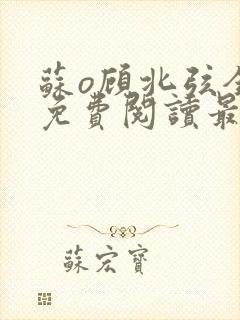 蘇o顧北弦全
免費閱讀最
蘇宏寶